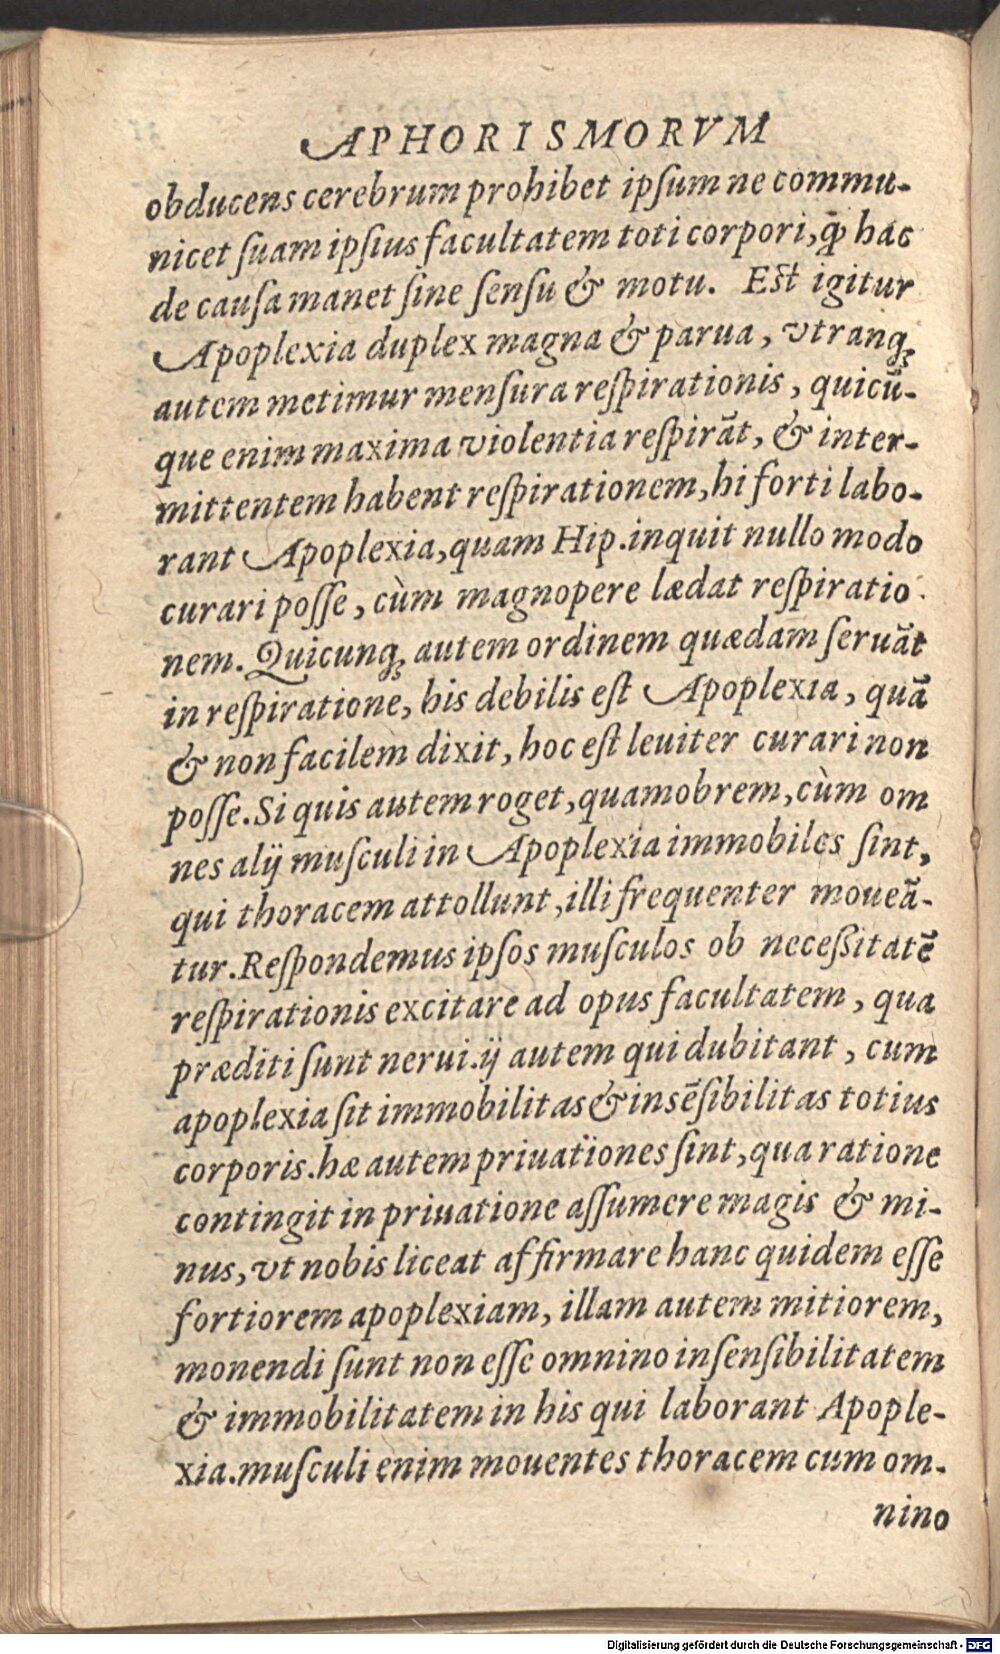 APHORISMORVM
obducens cerebrum prohibet ipſum ne commu-
nicet ſuam ipſius facultatem toti corpori, ꝙ hac
de cauſa manet ſine ſenſu & motu. Eſt igitur
Apoplexia duplex magna & parua, vtranqꝫ
autem metimur menſura reſpirationis, quicū-
que enim maxima violentia reſpirāt, & inter-
mittentem habent reſpirationem, hi forti labo-
rant Apoplexia, quam Hip. inquit nullo modo
curari poſſe, cùm magnopere lædat reſpiratio
nem. Quicunqꝫ autem ordinem quædam ſeruāt
in reſpiratione, his debilis eſt Apoplexia, quā
& non facilem dixit, hoc eſt leuiter curari non
poſſe. Si quis autem roget, quamobrem, cùm om
nes alij muſculi in Apoplexia immobiles ſint,
qui thoracem attollunt, illi frequenter moueā-
tur. Reſpondemus ipſos muſculos ob neceßitatē
reſpirationis excitare ad opus facultatem, qua
præditi ſunt nerui. ij autem qui dubitant, cum
apoplexia ſit immobilitas & inſēſibilitas totius
corporis. hæ autem priuationes ſint, qua ratione
contingit in priuatione aſſumere magis & mi-
nus, vt nobis liceat affirmare hanc quidem eſſe
fortiorem apoplexiam, illam autem mitiorem,
monendi ſunt non eſſe omnino inſenſibilitatem
& immobilitatem in his qui laborant Apople-
xia. muſculi enim mouentes thoracem cum om-
nino
Digitalisierung gefördert durch die Deutsche Forschungsgemeinschaft - DFG